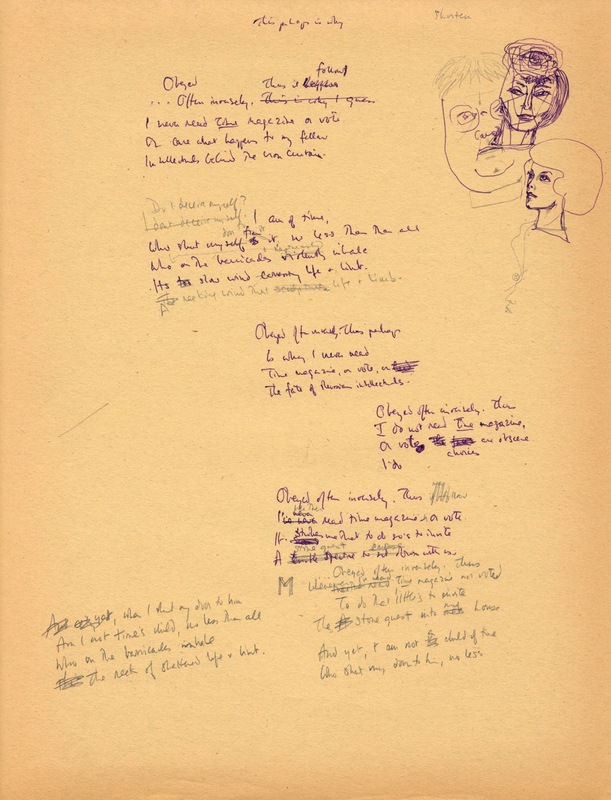 This perhaps is why
Shorten
follows
Obeyed Thus it happens
... Often inversely. This is why I guess
I never read Time magazine or vote
Or care what happens to my fellow
Intellectuals behind the iron curtain.
Don't deceive myself?
I don't deceive myself. I am of time,
Who shut myself from it no less than all
Who on the barricades violently inhale
Its slow wind life + limb.
reeking wind that life + limb.
Obeyed often inversely. Thus perhaps
Is why I never read
Time magazine, or vote, or
The fate of Russian intellectuals.
Obeyed often inversely. Thus
I do not read Time magazine,
Or vote an obscene
choices
I do
Obeyed often inversely. Thus
never read Time magazine or vote
It. to do so is to invite
A spectre to sit down with us
stone guest
M
...Obeyed often inversely. Thus
Time magazine nor voted
To do that little is to invite
The stone guest into house
And yet, I am not child of time
Who shut my door to him, no less
And yet, when I shut my door to him
Am I not time's child, no less than all
Who on the barricades inhale
The reek of shattered life + limb.